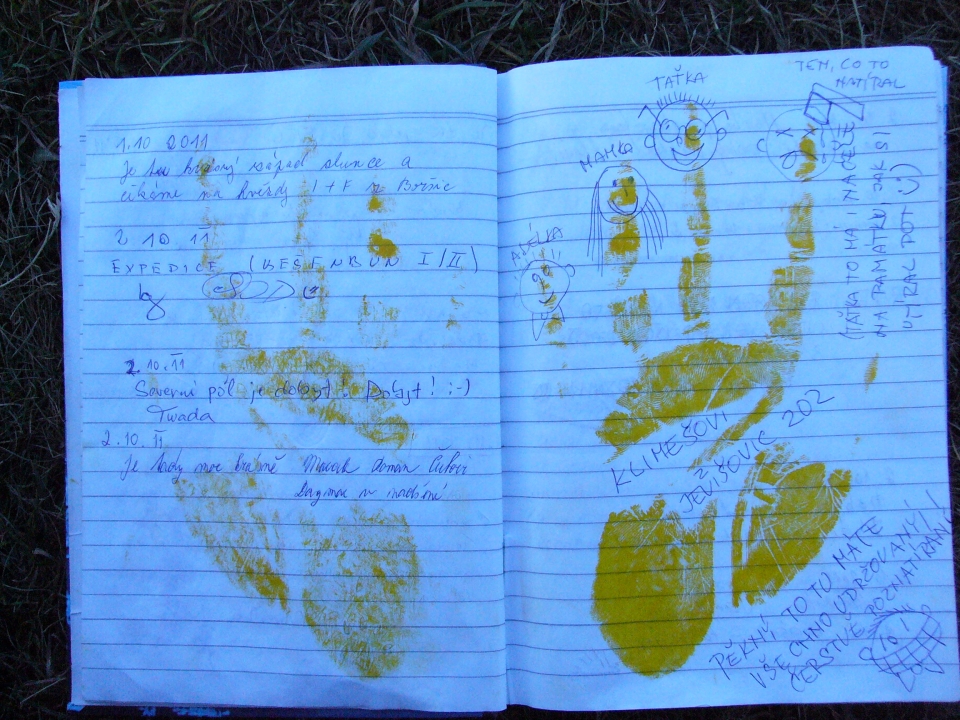 1.10 2011
Je tu krásný západ slunce a
čekáme na hvězdy I + F z Boršic
2 10 11
EXPEDICE (BEŠENBUN I/II)
2.10.11
Severní pól je dobyt! Dobyt! :-)
Twada
2.10.11
Je tady moc krásně
Dagmar
TAŤKA
MAMKA
ADÉLKA
TEN, CO TO
NATÍRAL
(TAŤKA TO MÁ I NA ČELE
NA PAMÁTKU, JAK SI
UTÍRAL POT :-)
KLIMEŠOVI
Z
JEVIŠOVIC 202
PĚKNÝ TO TO MÁTE
VŠECHNO UDRŽOVANÝ!
ČERSTVĚ POZNATÍRANÝ!